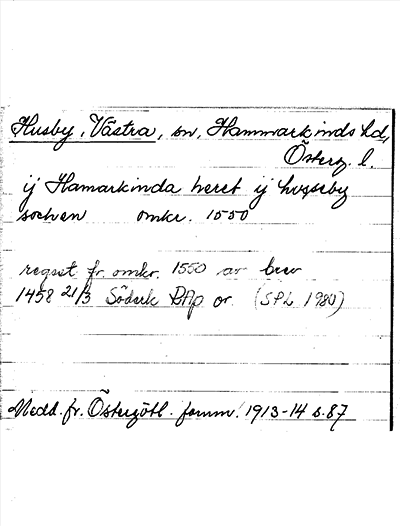 Husby, Västra, sn, Hammarkinds hd,
Österg. l.
ij Hamarkinda heret ij husseby
sochen omkr. 1550
regest fr. omkr. 1550 av brev
1458 21/3 Söderk RAp or. (SPL 1980)
Medd. fr. Östergötl. fornm. 1913-14 s. 87